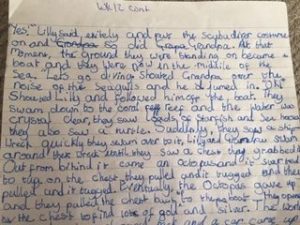 WK12 cont
Yes," Lilly said exitely and put the scybudiver costume
on and so did Grandpa. At that
moment, the ground they were standing on became a
boat and they were now in the middle of the
Sea. Lets go diving Shouted Grandpa over the
noise of the Seagulls and he dived in. OK
Shouted Lilly and followed him off the boat. They
swam down to the coral reef and the water was
crystal clear, they saw loads of Starfish and Sea horses
they also saw a turtle. Suddenly, they saw a ship
wreck quickly they swam over to it, Lilly and Grandpa swam
around the wreck until they saw a chest they grabbed
Out from behind it came an octopus and it
to tug on the chest they pulled and it tugged and they
pulled and it tugged. Eventually, the Octopus gave up
and they pulled the chest back to the boat. They opened
the chest to find lots of gold and silver. The
and a car came up